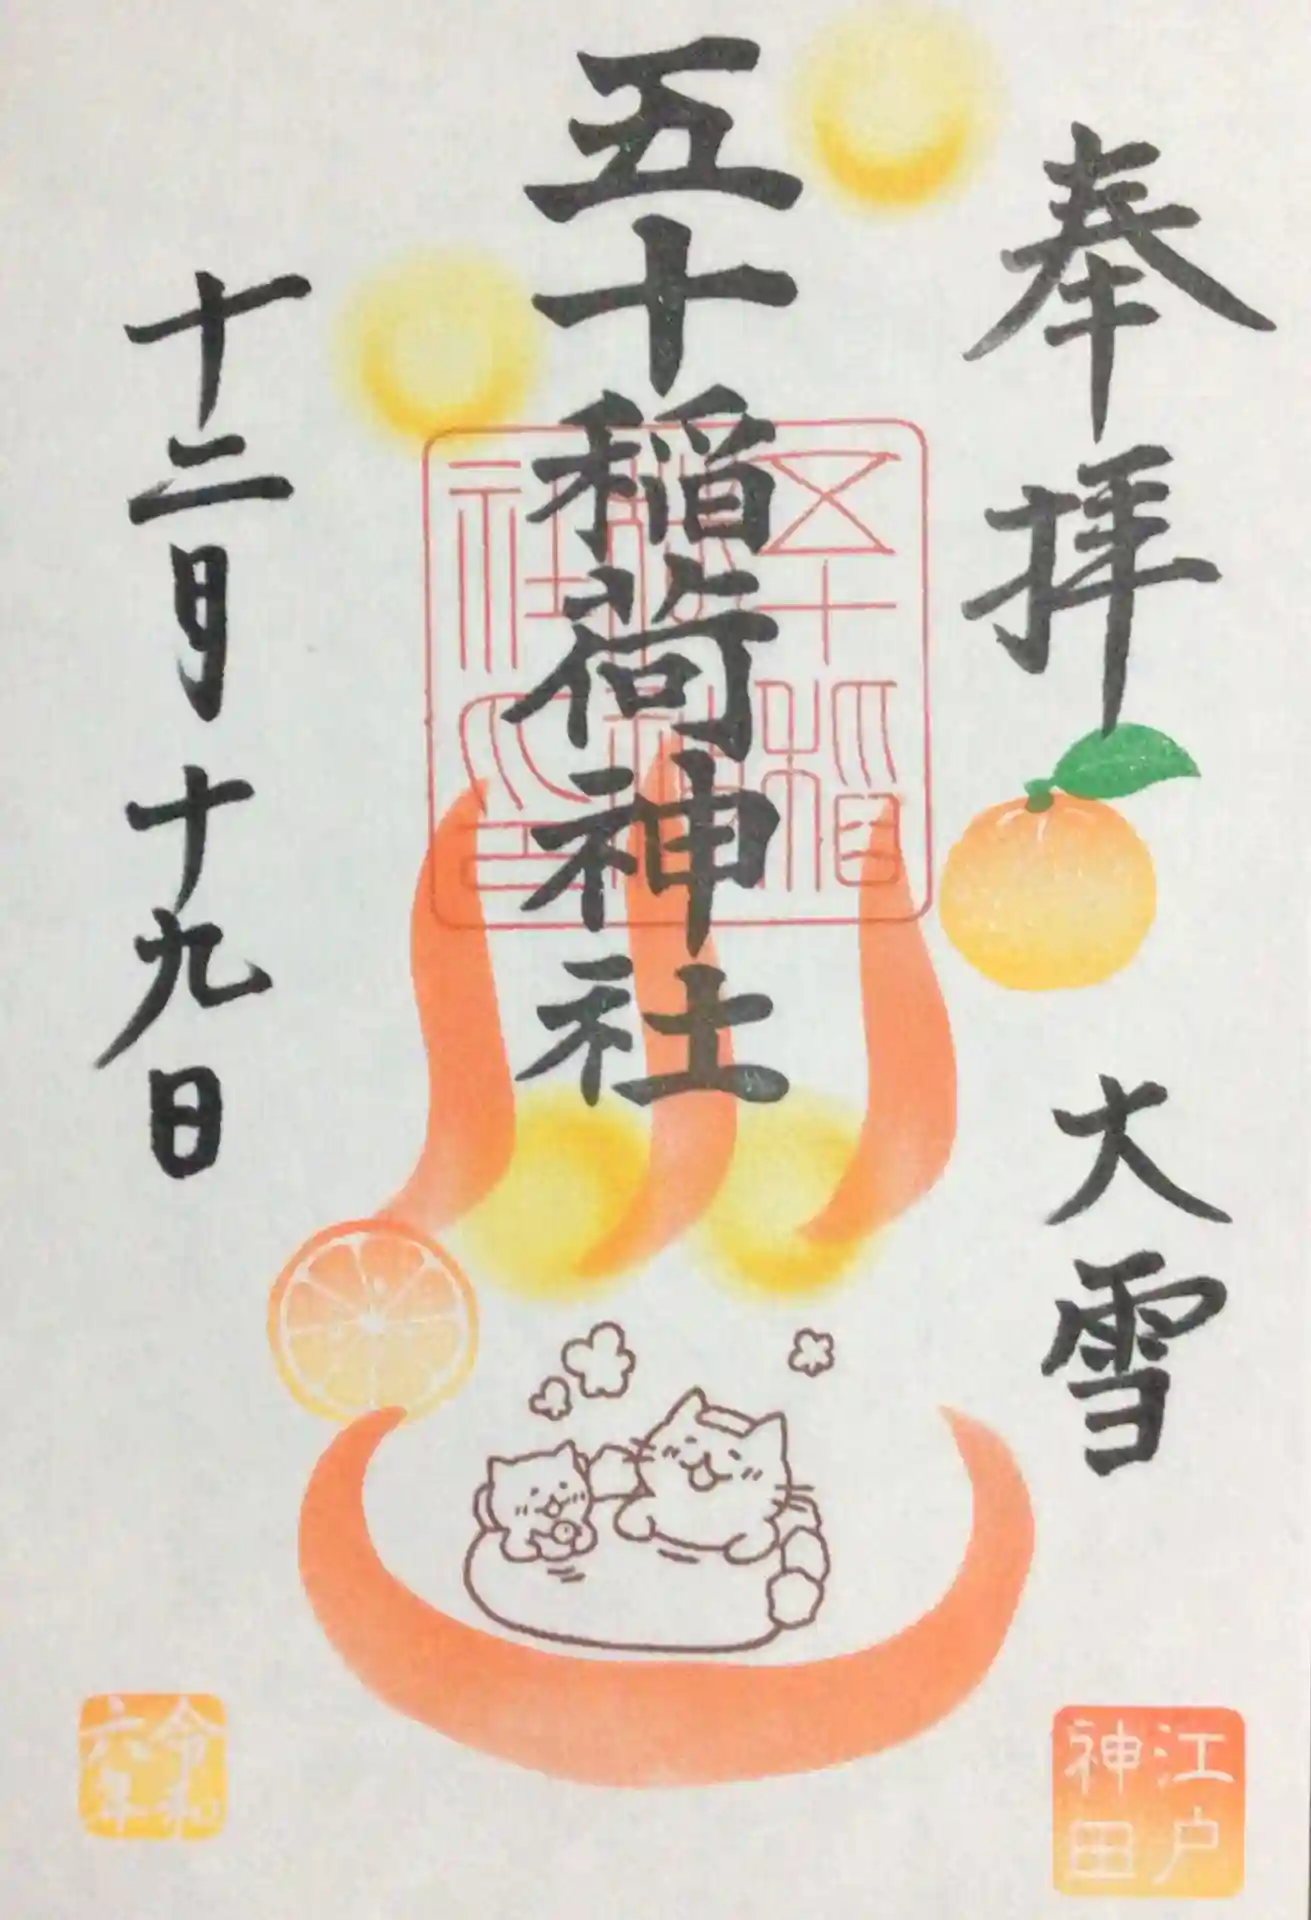 奉拝
大雪
江戸
神田
五十稲荷神社
五十稲
十二月十九日
令和
六年